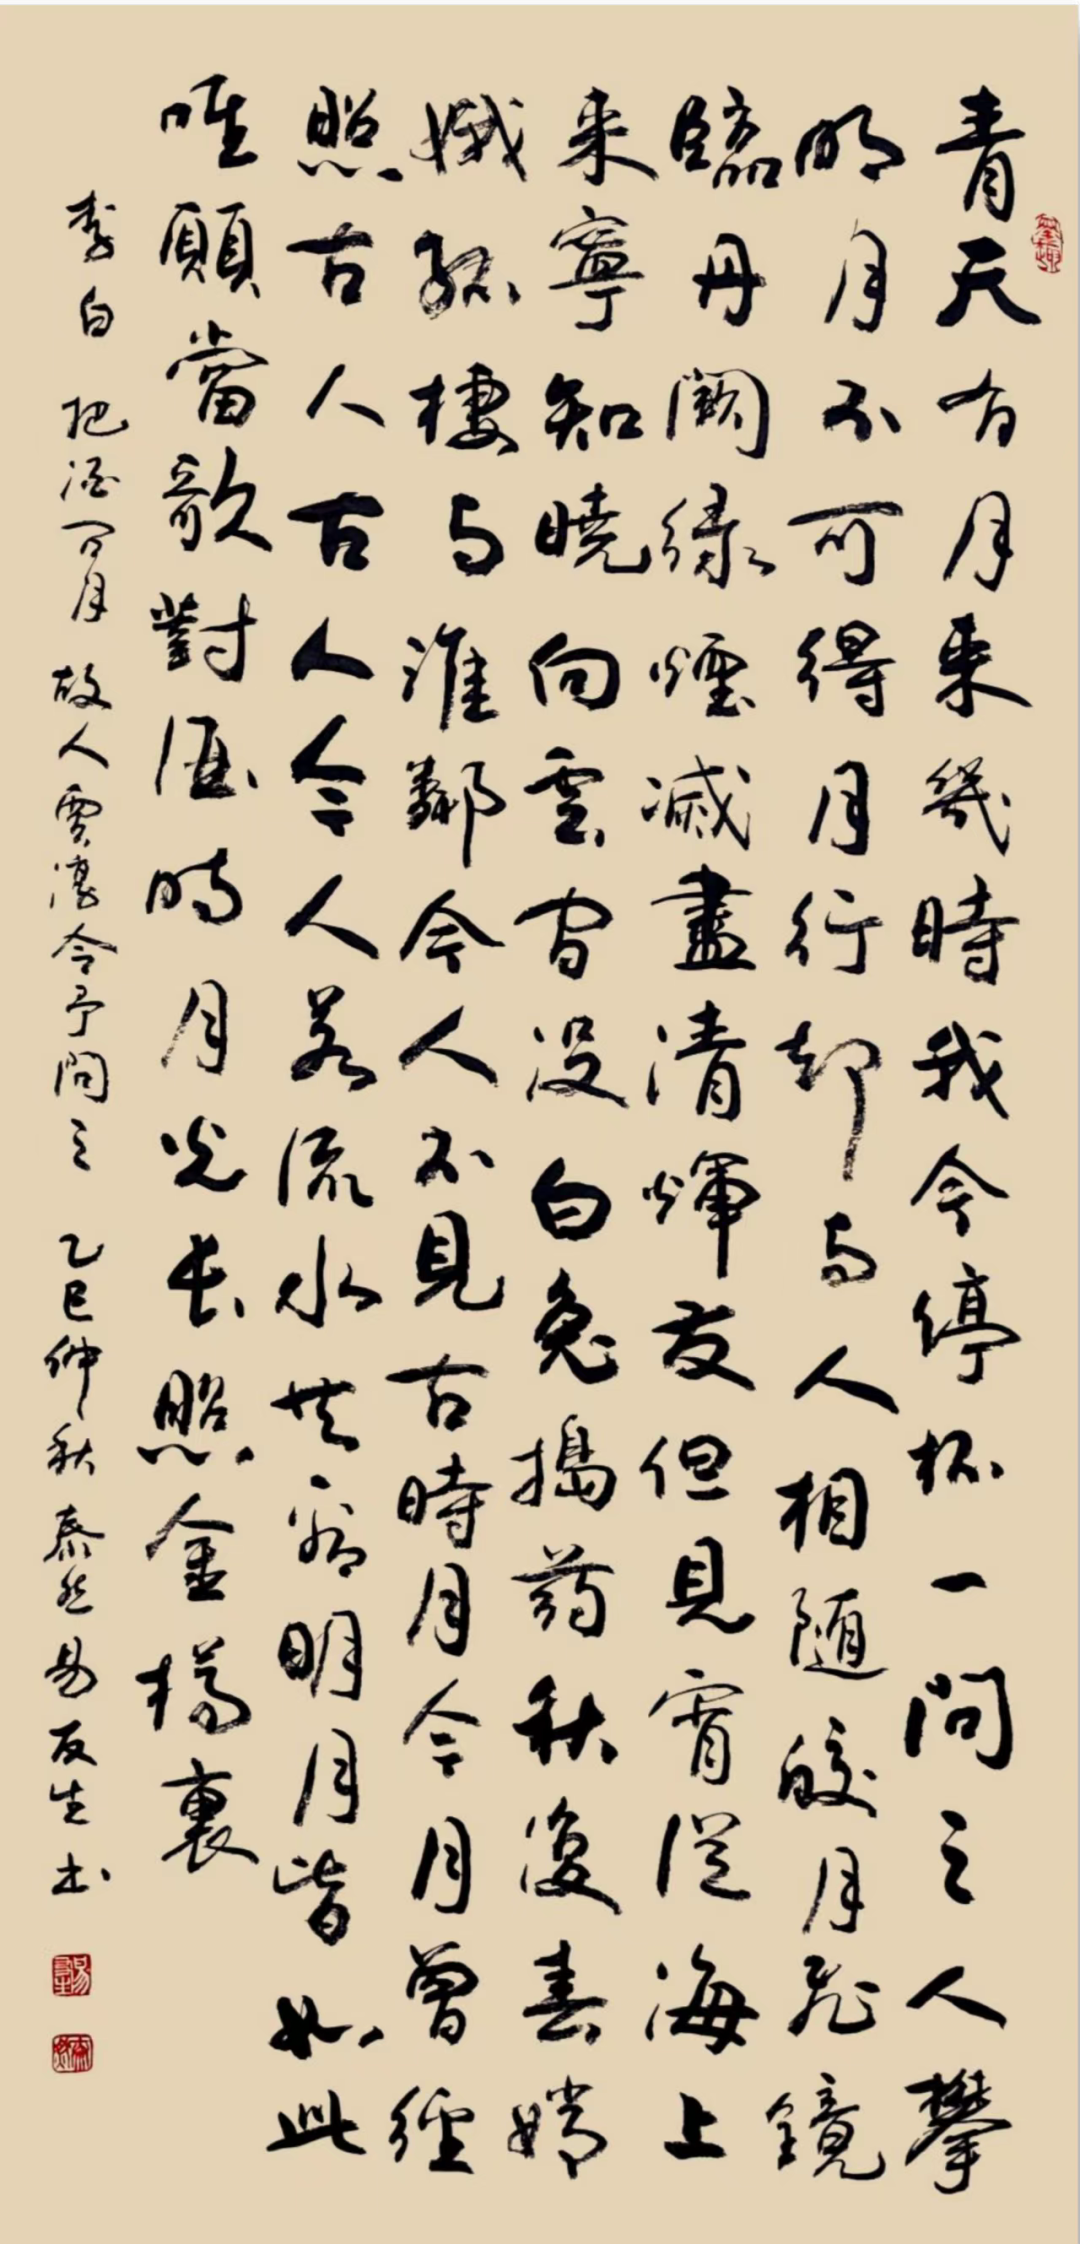 青天有月来幾時我今停杯一問之人攀
明月不可得月行却与人相随皎月飛鏡
臨丹闕緑煙滅盡清輝发但見宵從海上
来寧知曉向雲间没白兔搗药秋復春嫦
娥孤棲与誰鄰今人不見古時月今月曾經
照古人古人今人若流水共看明月皆如此
唯願當歌對酒時月光长照金樽裏
李白 把酒问月 故人賈淳令予問之 乙巳仲秋 泰然易友生书